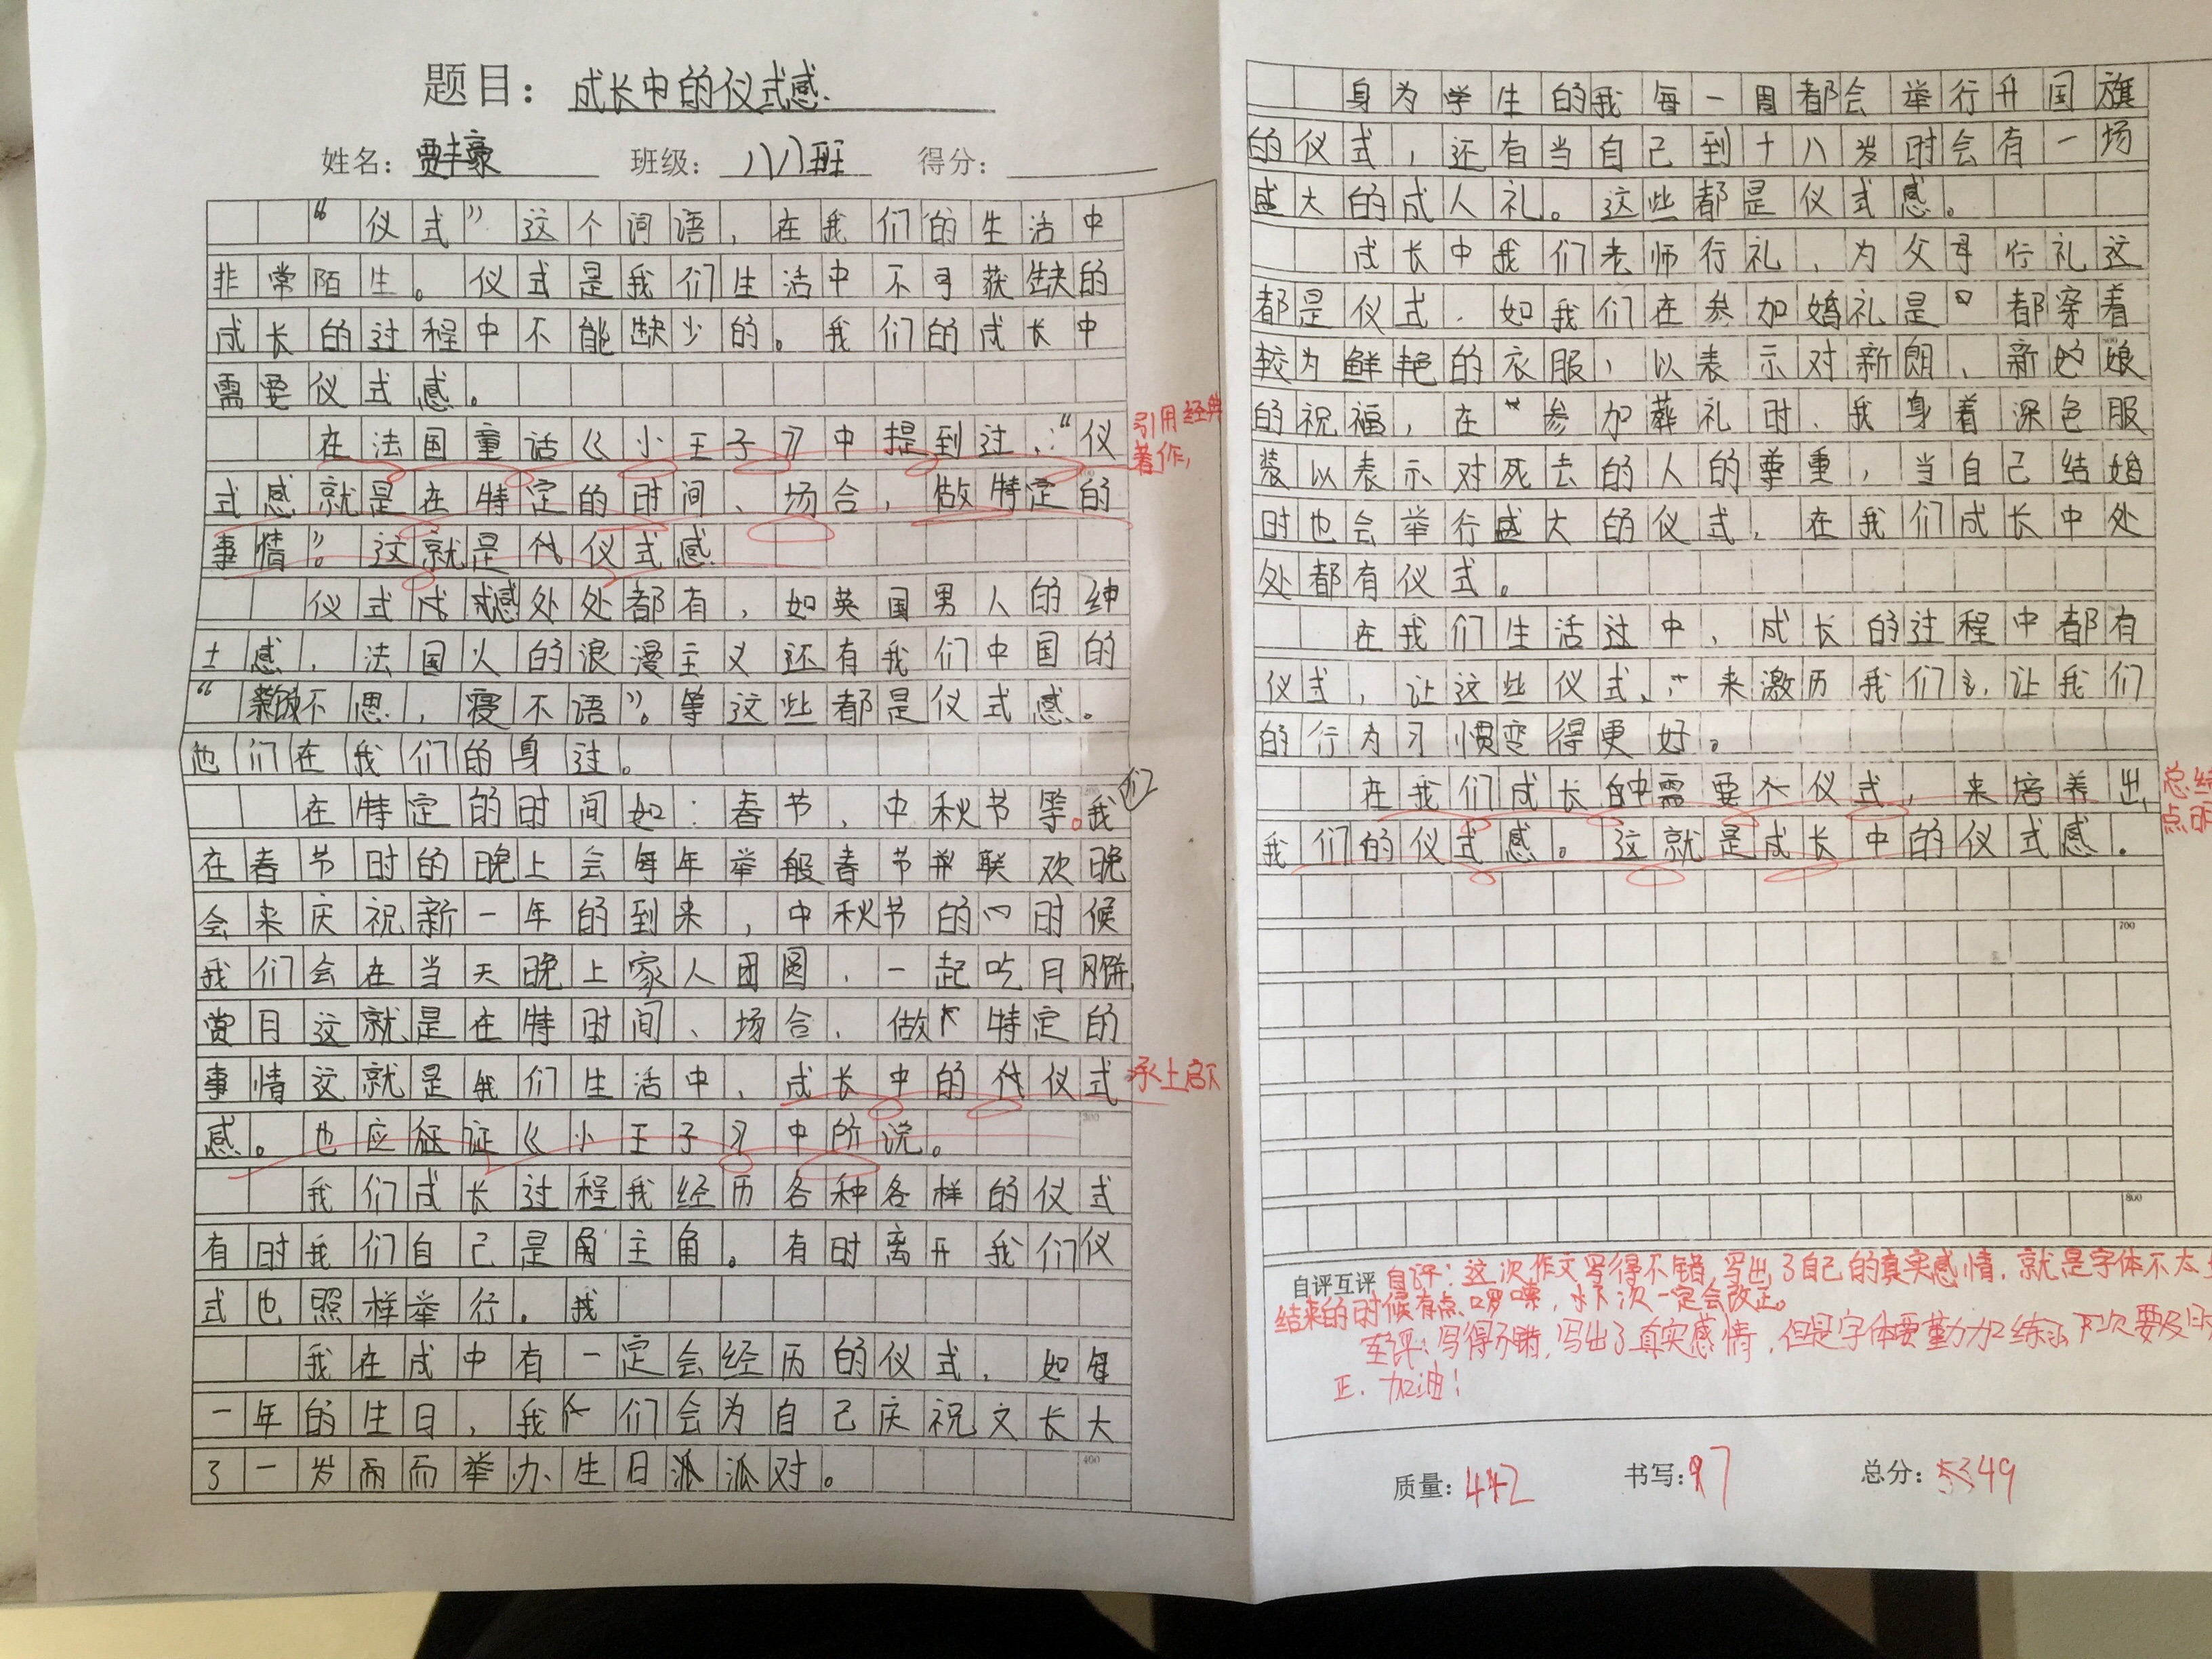 题目：成长中的仪式感.
姓名：贾丰豪 班级：八八班 得分：
“仪式”这个词语，在我们的生活中
非常陌生。仪式是我们生活中不可获缺的
成长的过程中不能缺少的。我们的成长中
需要仪式感。
在法国童话《小王子》中提到过，：“仪
式感就是在特定的时间、场合，做特定的
事情”。这就是仪式感
仪式感处处都有，如英国男人的绅
士感，法国人的浪漫主义还有我们中国的
“不思，寝不语”。等这些都是仪式感。
他们在我们的身过。
在特定的时间如：春节，中秋节等。我们
在春节时的晚上会每年举般春节联欢晚
会来庆祝新一年的到来，中秋节的时候
我们会在当天晚上家人团圆，一起吃月饼，
赏月这就是在特时间、场合，做特定的
事情这就是我们生活中，成长中的仪式
感。也应证《小王子》中所说。
我们成长过程我经历各种各样的仪式
有时我们自己是主角。有时离开我们仪
式也照样举行。我
我在成中有一定会经历的仪式，如每
一年的生日，我们会为自己庆祝又长大
了一岁而举办生日派对。
引用经典
著作，
承上启下
身为学生的我每一周都会举行升国旗
的仪式，还有当自己到十八岁时会有一场
盛大的成人礼。这些都是仪式感。
成长中我们老师行礼，为父母行礼这
都是仪式．如我们在参加婚礼是都穿着
较为鲜艳的衣服，以表示对新朗、新娘
的祝福，在参加葬礼时、我身着深色服
装以表示对死去的人的尊重，当自己结婚
时也会举行盛大的仪式．在我们成长中处
处都有仪式。
在我们生活过中，成长的过程中都有
仪式，让这些仪式、来激历我们，让我们
的行为习惯变得更好。
在我们成长中需要仪式，来培养出
我们的仪式感。这就是成长中的仪式感．
总结
点明
700
800
300
400
自评互评 自评：这次作文写得不错，写出了自己的真实感情，就是字体不太
结来的时候有点啰嗦，下次一定会改正。
互评：写得不错，写出了真实感情，但是字体要勤加练 下次要及时
正．加油！
质量：442 书写：97 总分：5349